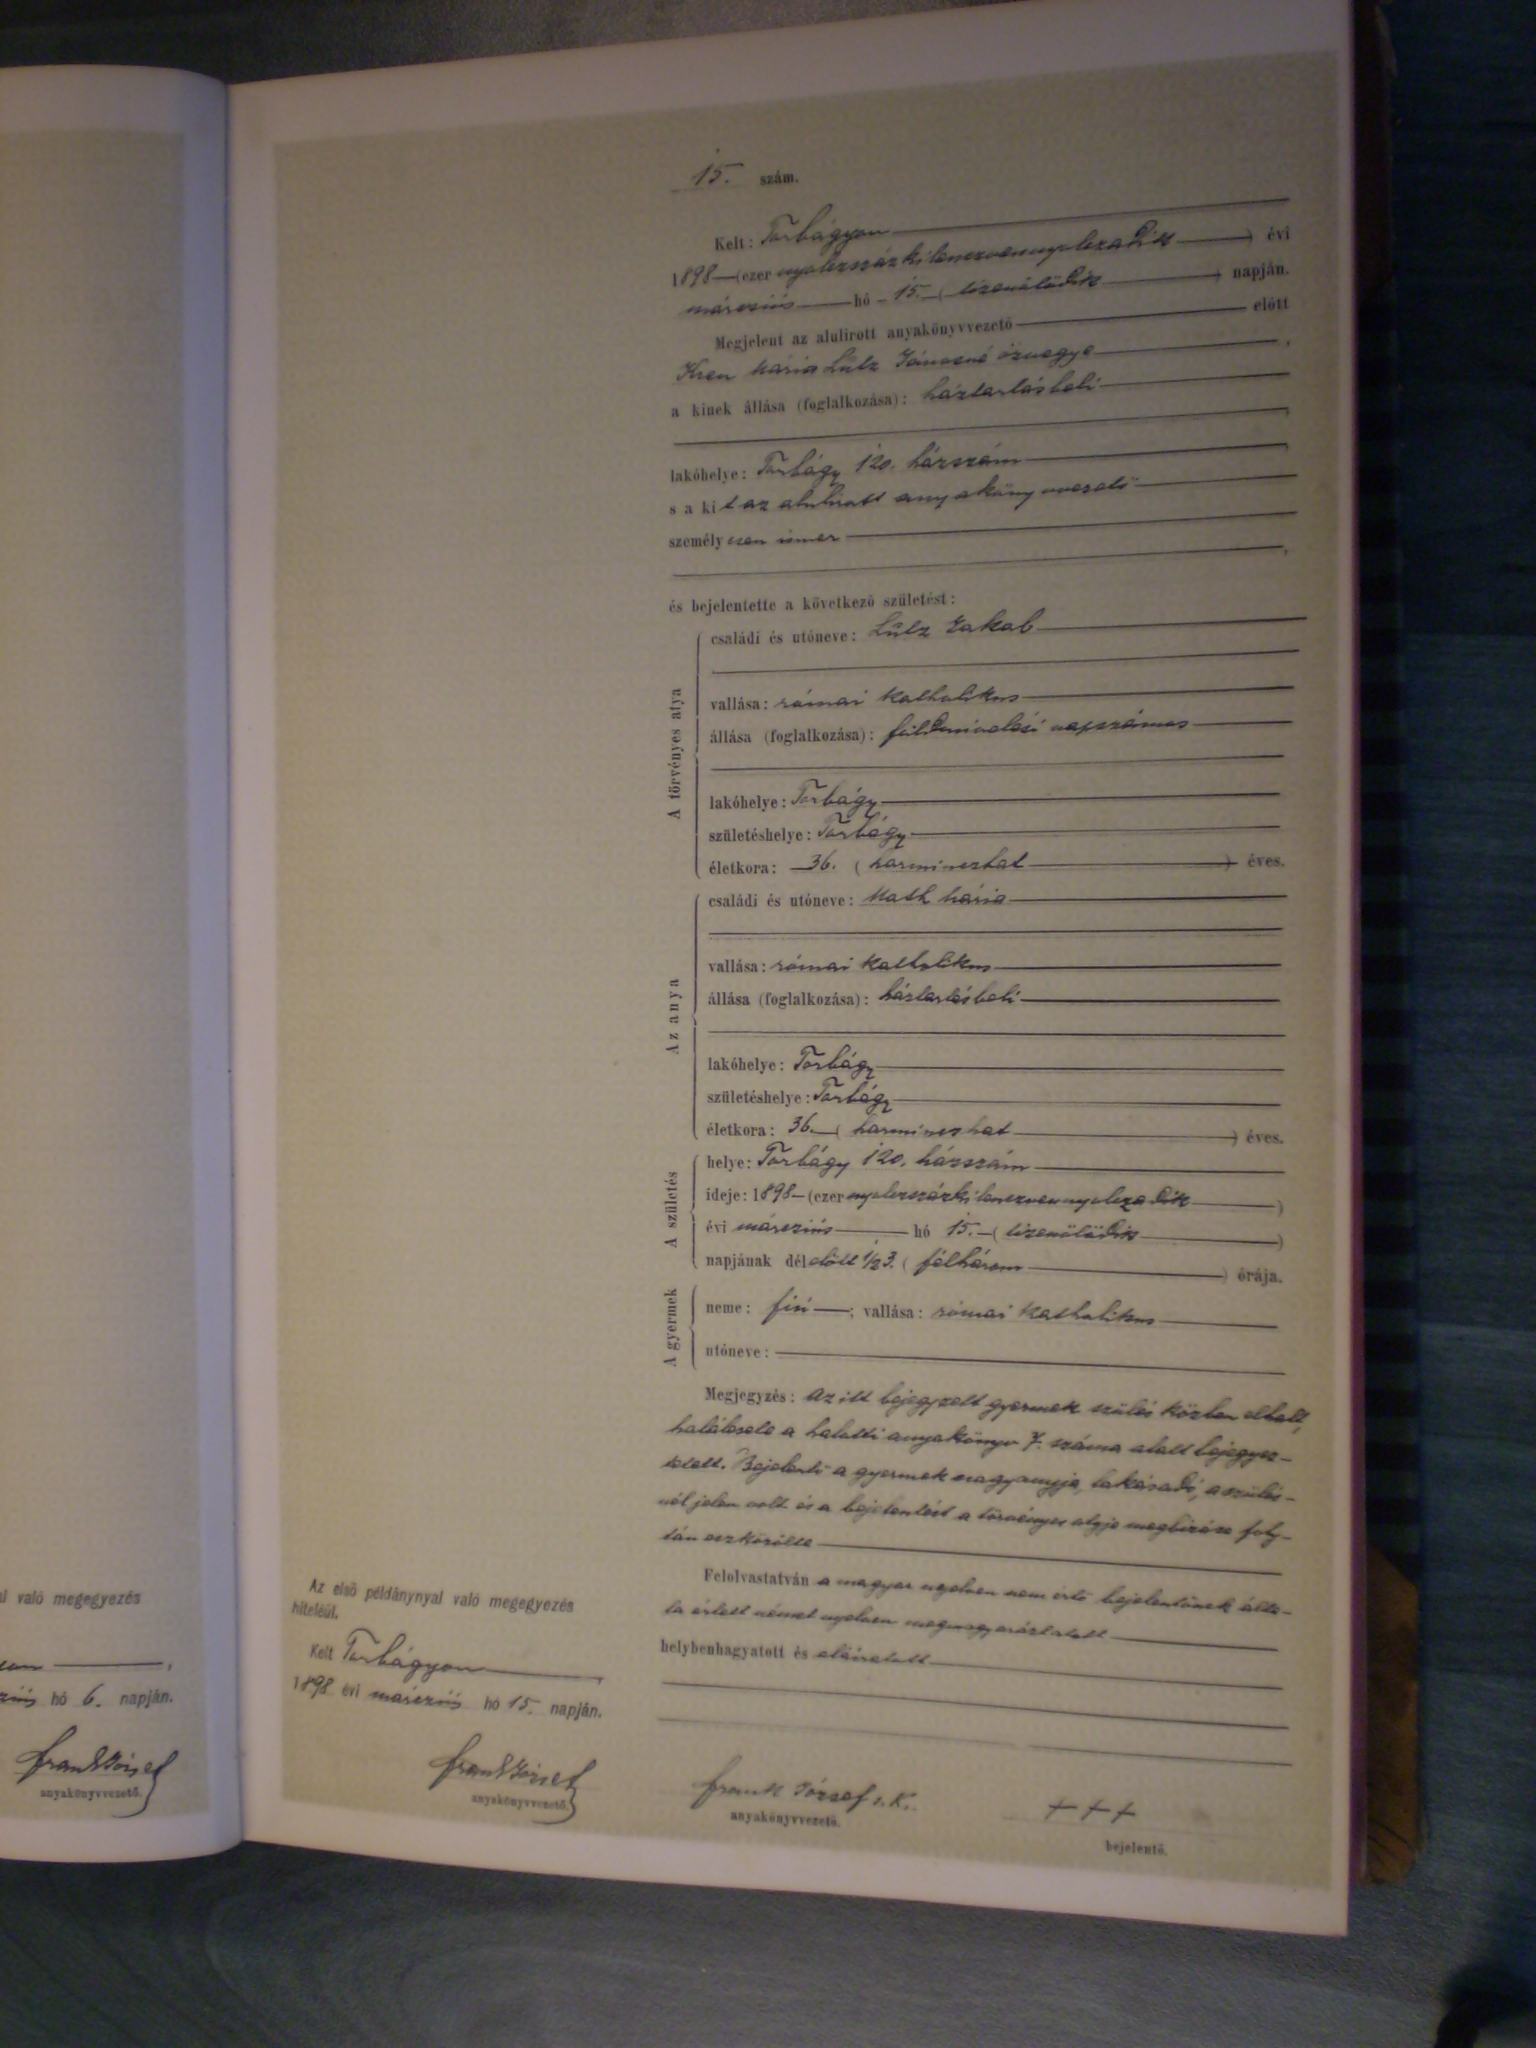 15. szám.
Kelt: Torbágyon
1898 (ezer nyolczszázkilenczvennyolczadik) évi
márczius hó 15. (tizenötödik) napján.
Megjelent az alulirott anyakönyvvezető előtt
Kren Mária Lülz Jánosné özvegye,
a kinek állása (foglalkozása): háztartásbeli
lakóhelye: Torbágy 120. házszám
s a kit az alulirott anyakönyvvezető
személyesen ismer,
és bejelentette a következő születést:
A törvényes atya
családi és utóneve: Lülz Jakab
vallása: római katholikus
állása (foglalkozása): földmívelési napszámos
lakóhelye: Torbágy
születéshelye: Torbágy
életkora: 36. (harminczhat) éves.
Az anya
családi és utóneve: Math Mária
vallása: római katholikus
állása (foglalkozása): háztartásbeli
lakóhelye: Torbágy
születéshelye: Torbágy
életkora: 36. (harminczhat) éves.
A születés
helye: Torbágy 120. házszám
ideje: 1898 (ezer nyolczszázkilenczvennyolczadik)
évi márczius hó 15. (tizenötödik)
napjának délelőtt 1/2 3. (félhárom) órája.
A gyermek
neme: fiú; vallása: római katholikus
utóneve:
Megjegyzés: Az itt bejegyzett gyermek szülés közben elhalt,
halálesete a halotti anyakönyv 7. száma alatt bejegyez-
tetett. Bejelentő a gyermek nagyanyja, lakásadó, a szülés-
nél jelen volt és a bejelentést a törvényes atyja megbízása foly-
tán eszközölte
Felolvastatván a magyar nyelven nem értő bejelentőnek álta-
la értett német nyelven megmagyaráztatott
helybenhagyatott és aláiratott
Frank József s. k.
anyakönyvvezető.
+++
bejelentő.
Az első példánynyal való megegyezés
hiteléül.
Kelt Torbágyon,
1898 évi márczius hó 15. napján.
Frank József
anyakönyvvezető.
való megegyezés
hó 6. napján.
Frank József
anyakönyvvezető.